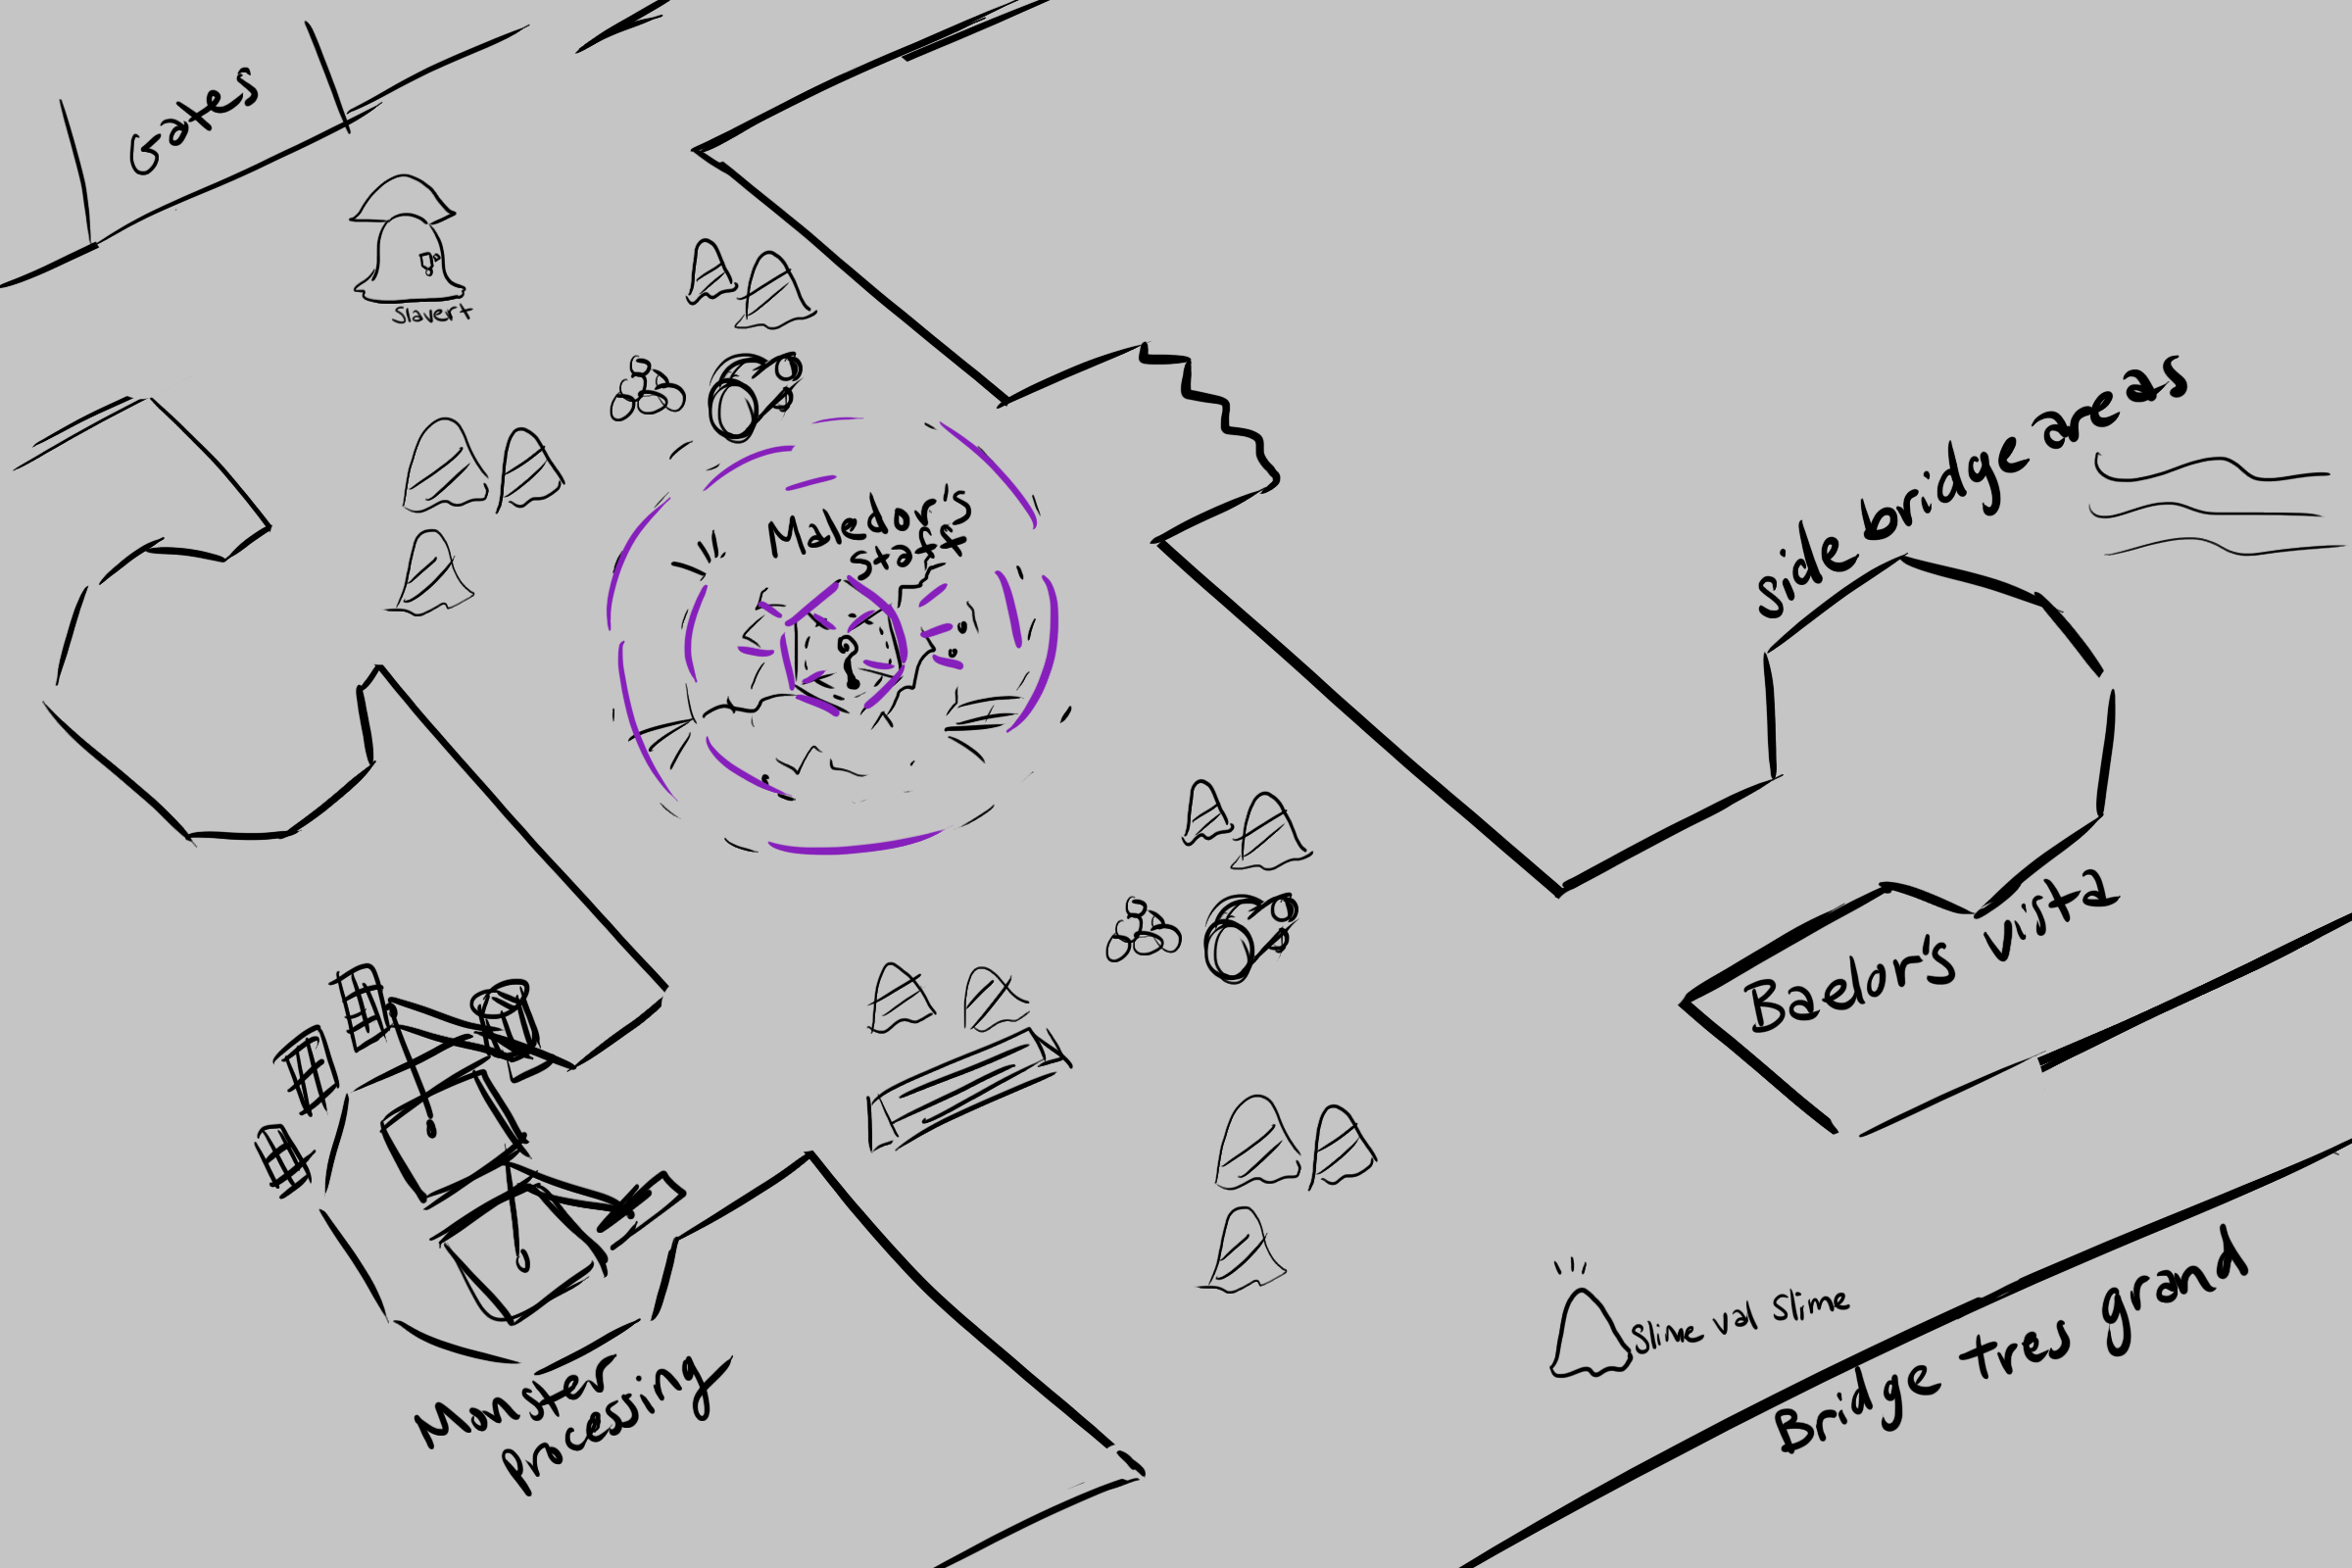 Gates
Slavert
Makedor's
staff
side bridge areas
Baelor's vista
Slime val Slime
Bridge tres grand
Munster
processing